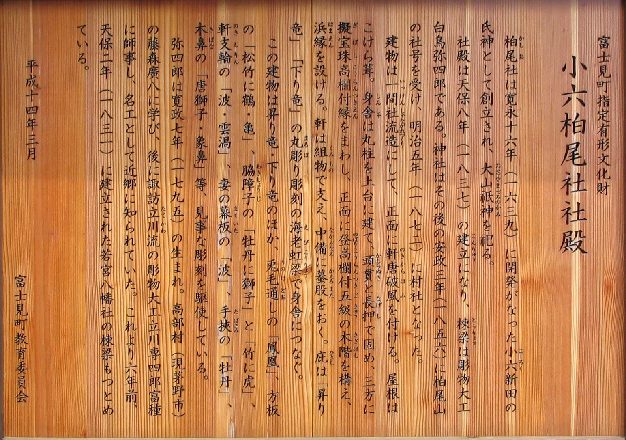 富士見町指定有形文化財
小六柏尾社社殿
柏尾社は寛永十六年(一六三九)に開発がなった小六新田の
氏神として創立され、大山祇神を祀る。
社殿は天保八年(一八三七)の建立になり、棟梁は彫物大工
白鳥弥四郎である。神社はその後の安政三年(一八五六)に柏尾山
の社号を受け、明治五年(一八七二)に村社となった。
建物は一間社流造にして、正面に軒唐破風を付ける。屋根は
こけら葺。身舎は丸柱を土台に建て、頭貫と長押で固め、三方に
擬宝珠高欄付縁をまわし、正面に登高欄付五級の木階を構え、
浜縁を設ける。軒は組物で支え、中備に蟇股をおく。庇は「昇り
竜」「下り竜」の丸彫り彫刻の海老虹梁で身舎につなぐ。
この建物は昇り竜、下り竜のほか、兎毛通しの「鳳凰」、方板
の「松竹に鶴・亀」、脇障子の「牡丹に獅子」と「竹に虎」、
軒支輪の「波・雲渦」、妻の幕板の「波」、手挟の「牡丹」、
木鼻の「唐獅子・象鼻」等、見事な彫刻を駆使している。
弥四郎は寛政七年(一七九五)の生まれ。高部村(現茅野市)
の藤森廣八に学び、後に諏訪立川流の彫物大工立川専四郎富種
に師事し、名工として近郷に知られていた。これより六年前、
天保二年(一八三一)に建立された若宮八幡社の棟梁もつとめ
ている。
平成十四年三月
富士見町教育委員会